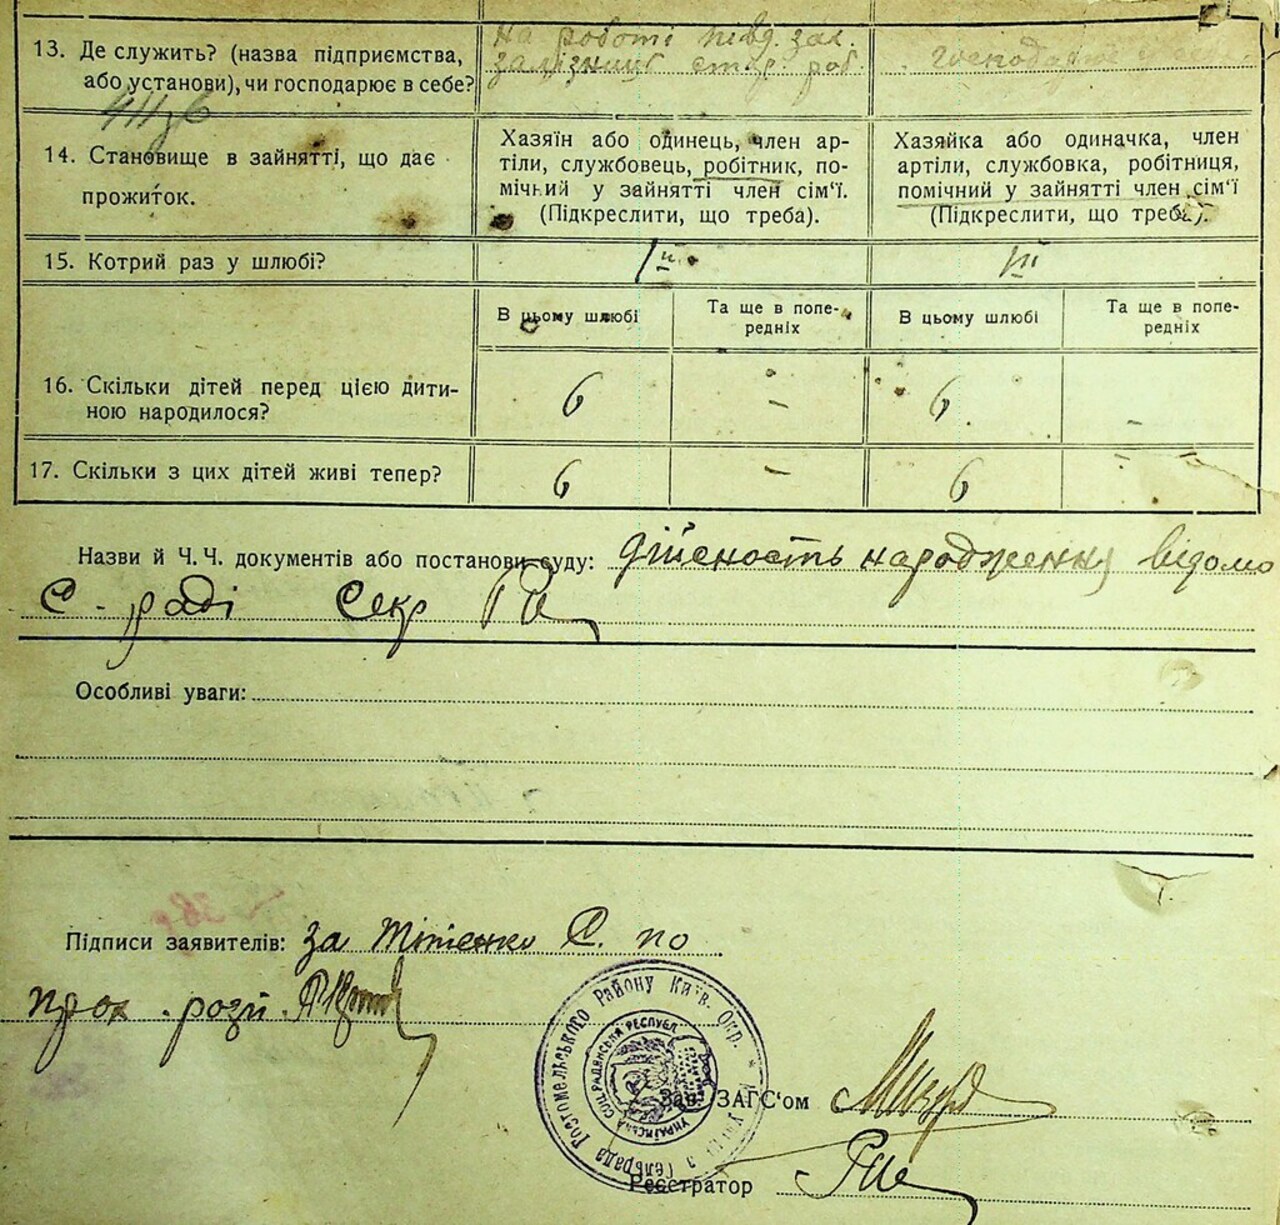 13. Де служить? (назва підприємства,
або установи), чи господарює в себе?
На роботі півд. зах.
залізниці ст. роб.
господарює
14. Становище в зайнятті, що дає
прожиток.
Хазяїн або одинець, член ар-
тілі, службовець, робітник, по-
мічний у зайнятті член сім'ї.
(Підкреслити, що треба).
Хазяйка або одиначка, член
артілі, службовка, робітниця,
помічний у зайнятті член сім'ї
(Підкреслити, що треба).
15. Котрий раз у шлюбі?
В цьому шлюбі
Та ще в попе-
редніх
В цьому шлюбі
Та ще в попе-
редніх
16. Скільки дітей перед цією дити-
ною народилося?
6 – 6 –
17. Скільки з цих дітей живі тепер?
6 – 6 –
Назви й Ч. Ч. документів або постанови суду: дійсность народження відомо
С. раді Секр
Особливі уваги:
Підписи заявителів: за Тітенко С. по
прох. розп.
Гостомельського Району Київ. Окр.
Українська Соц. Радянська Республ.
Зав. ЗАГС'ом
Реєстратор